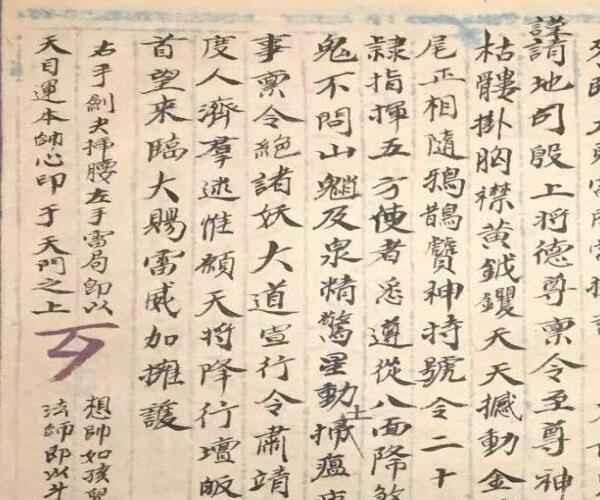 謹請地司殷上將德尊稟令至尊神
枯髏掛胸襟黃鉞钁天天撼動金
尾正相隨鴉鵲贊神将號令二十
隸指揮五方使者悉遵從八面降
鬼不問山魈及泉精驚星動土掃瘟
事稟令絕諸妖大道宣行令肅靖
度人濟羣迷惟願天將降行壇皈
首望來臨大賜雷威加擁護
右手劍夫掃腰左手雷局即以
想帥如孩
天目運本帥心印于天門之上
法師即以斗